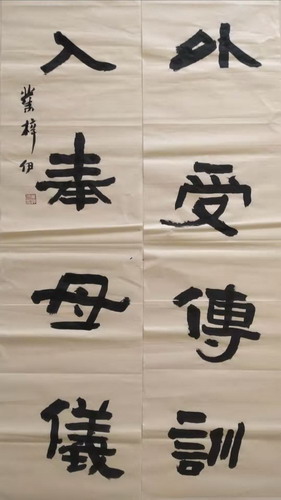 外受傅訓
入奉母儀
業梓伊